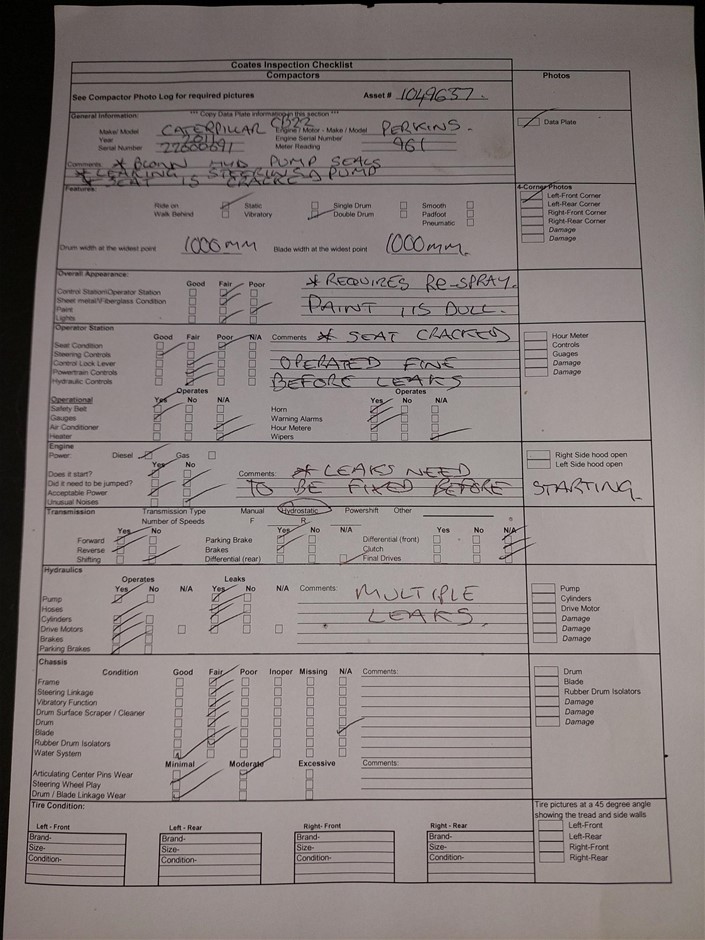 Coates Inspection Checklist
Compactors
Photos
See Compactor Photo Log for required pictures Asset # 1049637.
General Information: *** Copy Data Plate information in this section ***
Data Plate
Make/ Model CATERPILLAR CB22 Engine / Motor - Make / Model PERKINS.
Year Engine Serial Number
Serial Number 22600691 Meter Reading 961
Comments * BLOWN HYD PUMP SEALS
* LEARING STEERING PUMP
* SEAT IS CRACKE
Features:
4-Corner Photos
Ride on Static Single Drum Smooth Left-Front Corner
Walk Behind Vibratory Double Drum Padfoot Left-Rear Corner
Pneumatic Right-Front Corner
Right-Rear Corner
Damage
Damage
Drum width at the widest point 1000MM Blade width at the widest point 1000MM.
Overall Appearance:
Good Fair Poor * REQUIRES RE-SPRAY.
Control Station/Operator Station
Sheet metal/Fiberglass Condition
Paint PAINT IS DULL.
Lights
Operator Station
Good Fair Poor N/A Comments * SEAT CRACKED
Seat Condition Hour Meter
Steering Controls Controls
Control Lock Lever OPERATED FINE Guages
Powertrain Controls Damage
Hydraulic Controls BEFORE LEAKS Damage
Operates Operates
Operational Yes No N/A Yes No N/A
Safety Belt Horn
Gauges Warning Alarms
Air Conditioner Hour Metere
Heater Wipers
Engine
Power: Diesel Gas Right Side hood open
Left Side hood open
Yes No
Does it start? Comments: * LEAKS NEED
Did it need to be jumped? TO BE FIXED BEFORE STARTING.
Acceptable Power
Unusual Noises
Transmission Transmission Type Manual Hydrostatic Powershift Other
Number of Speeds F R
Yes No Yes No N/A Yes No N/A
Forward Parking Brake Differential (front)
Reverse Brakes Clutch
Shifting Differential (rear) Final Drives
Hydraulics
Operates Leaks
Yes No N/A Yes No N/A Comments: MULTIPLE
Pump Pump
Hoses LEAKS. Cylinders
Cylinders Drive Motor
Drive Motors Damage
Brakes Damage
Parking Brakes Damage
Chassis
Condition Good Fair Poor Inoper Missing N/A Comments:
Frame Drum
Steering Linkage Blade
Vibratory Function Rubber Drum Isolators
Drum Surface Scraper / Cleaner Damage
Drum Damage
Blade Damage
Rubber Drum Isolators
Water System
Minimal Moderate Excessive Comments:
Articulating Center Pins Wear
Steering Wheel Play
Drum / Blade Linkage Wear
Tire Condition:
Tire pictures at a 45 degree angle
showing the tread and side walls
Left-Front
Left-Rear
Right-Front
Right-Rear
Left - Front Left - Rear Right- Front Right - Rear
Brand- Brand- Brand- Brand-
Size- Size- Size- Size-
Condition- Condition- Condition- Condition-